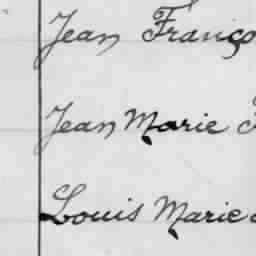 Jean Franço
Jean Marie
Louis Marie